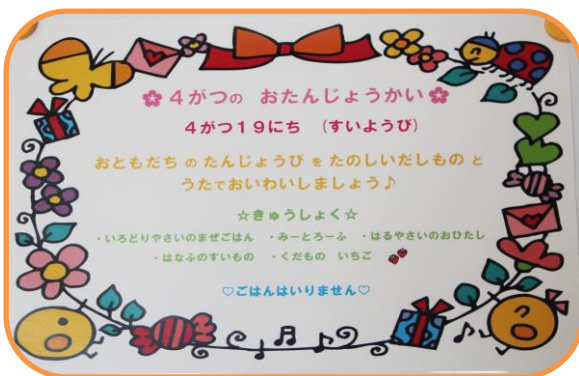 ✿4がつの おたんじょうかい✿
4がつ19にち (すいようび)
おともだち の たんじょうび を たのしいだしもの と
うたでおいわいしましょう♪
☆きゅうしょく☆
・いろどりやさいのまぜごはん ・みーとろーふ ・はるやさいのおひたし
・はなふのすいもの ・くだもの いちご
♡ごはんはいりません♡